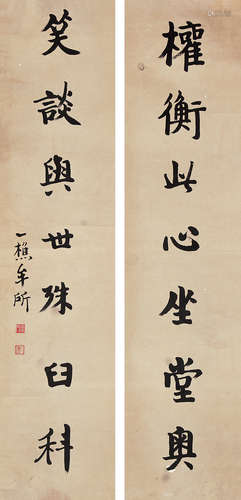 權衡此心坐堂奧
笑談與世殊臼科
一樵牟所